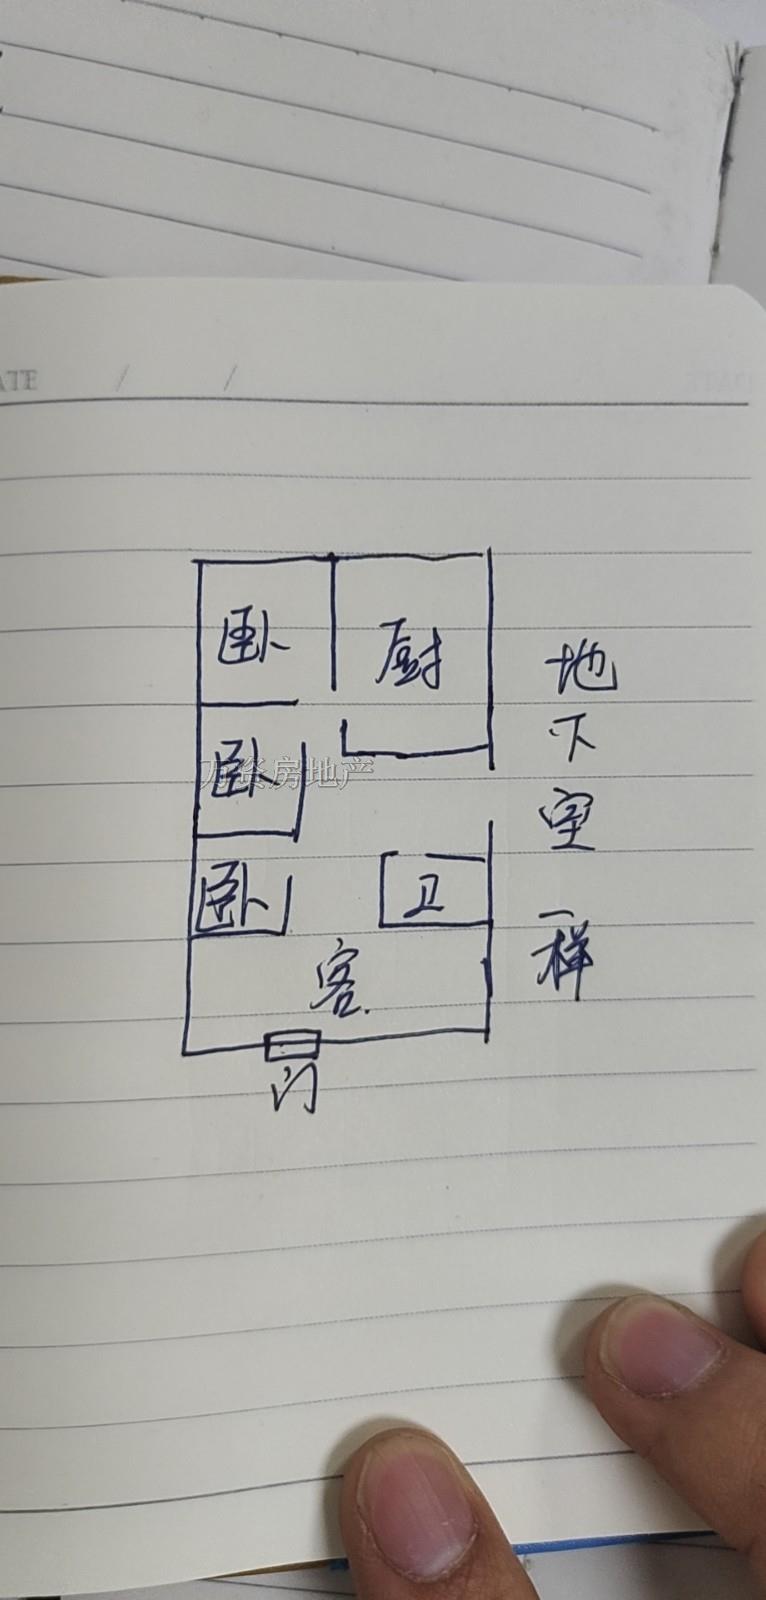 ATE / /
卧
厨
卧
万资房地产
卧
卫
客
门
地下室一样